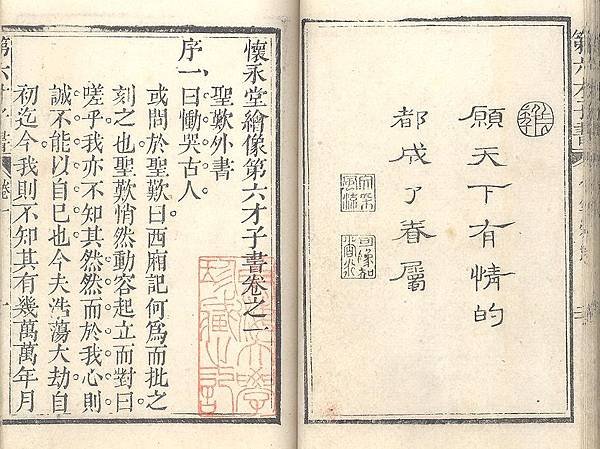 第六才子書
願天下有情的
都成了眷屬
懷永堂繪像第六才子書卷之一
聖歎外書
序一、曰慟哭古人
或問於聖歎曰西廂記何爲而批之
刻之也聖歎悄然動容起立而對曰
嗟乎我亦不知其然然而於我心則
誠不能以自已也今夫浩蕩大劫自
初迄今我則不知其有幾萬萬年月
第六才子書 卷一